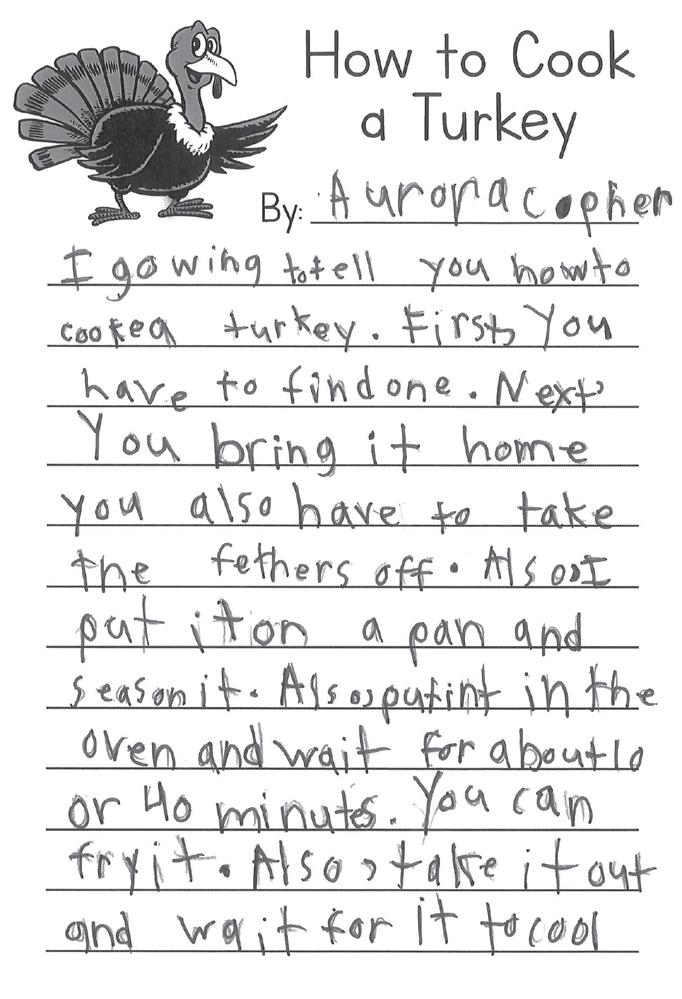 How to Cook
a Turkey
By: Aurora Copher
I gowing to tell you how to
cook ea turkey. First, You
have to find one. Next,
You bring it home
you also have to take
the fethers off. Also, I
put it on a pan and
season it. Also, put int in the
oven and wait for about 10
or 40 minutes. You can
fry it. Also, take it out
and wait for it to cool